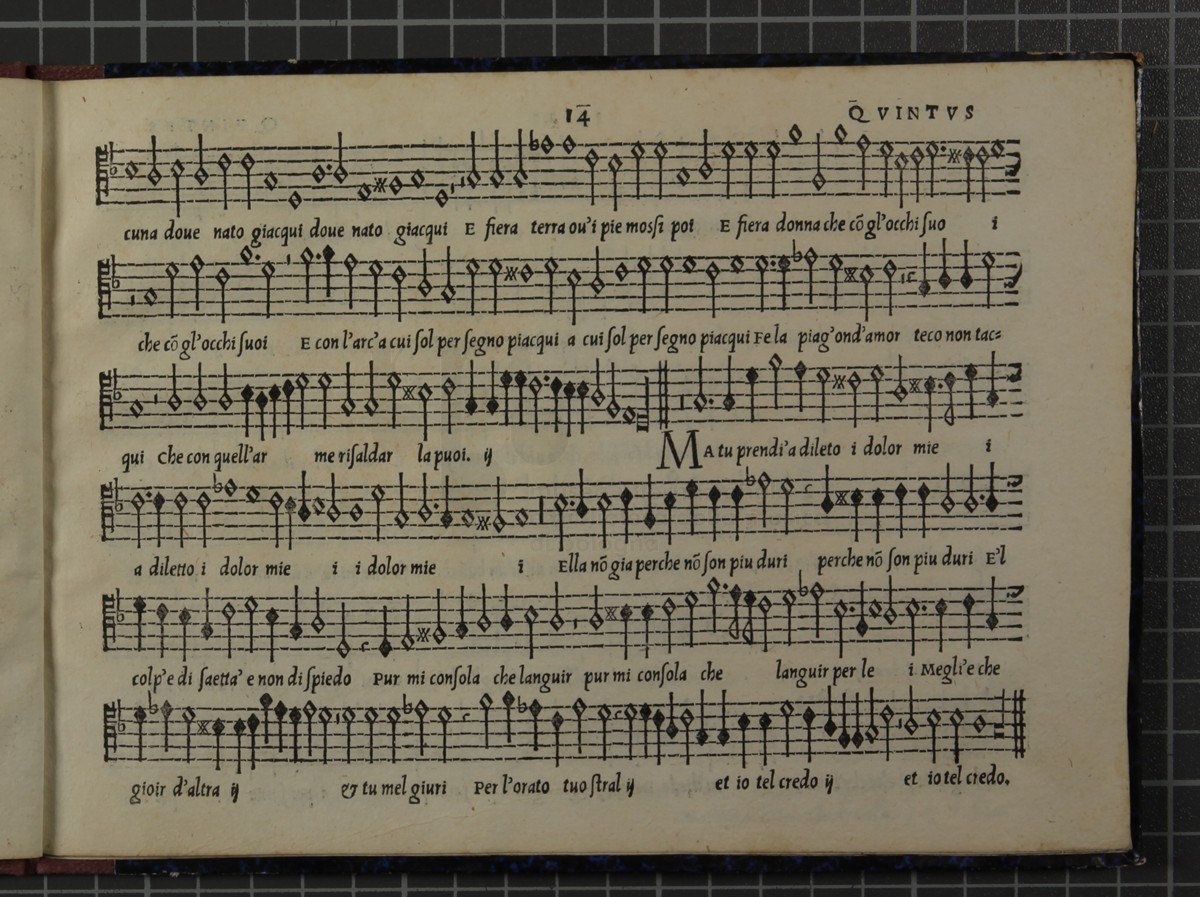 14 Q̄VINTVS
cuna doue nato giacqui doue nato giacqui E fiera terra ou'i pie mossi poi E fiera donna che cō gl'occhi suo i
che cō gl'occhi suoi E con l'arc'a cui sol per segno piacqui a cui sol per segno piacqui Fe la piag'ond'amor teco non tac=
qui Che con quell'ar me risaldar la puoi. ij MA tu prendi'a dileto i dolor mie i
a diletto i dolor mie i i dolor mie i Ella nō gia perche nō son piu duri perche nō son piu duri E'l
colp'e di saetta' e non di spiedo Pur mi consola che languir pur mi consola che languir per le i Megli'e che
gioir d'altra ij & tu mel giuri Per l'orato tuo stral ij et io tel credo ij et io tel credo.